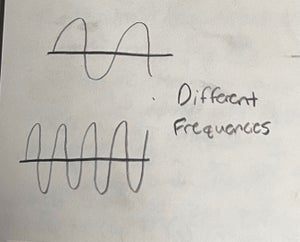 Different
Frequences